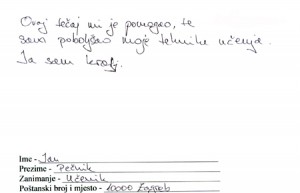 Ovaj tečaj mi je pomogao, te
sam poboljšao moje tehnike učenja.
Ja sam
Ime - Jan
Prezime - Pečnik
Zanimanje - Učenik
Poštanski broj i mjesto - 10000 Zagreb